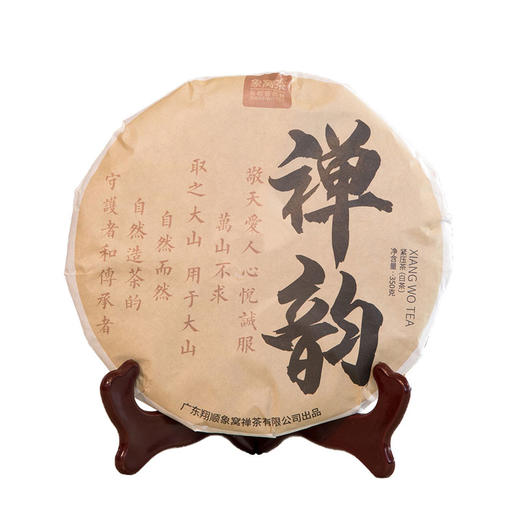 象窝茶
禅韵
XIANG WO TEA
紧压茶(白茶)
净含量:350克
敬天愛人 心悅誠服
萬山不求
取之大山 用于大山
自然而然
自然造茶的
守護者和傳承者
广东翔顺象窝禅茶有限公司出品